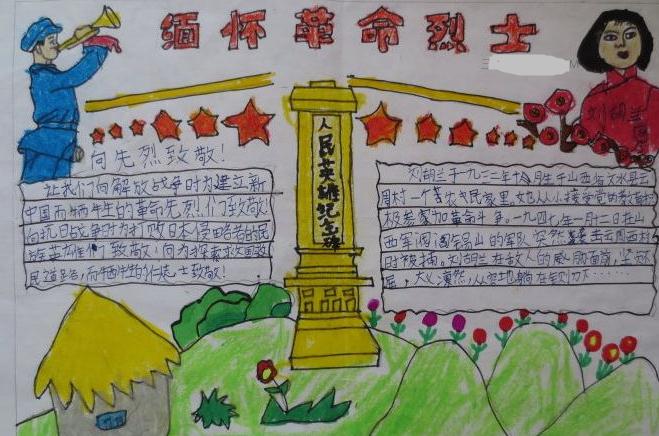 缅怀革命烈士
刘胡兰
人民英雄纪念碑
向先烈致敬!
让我们向解放战争时为建立新
中国而牺牲的革命先烈们致敬!
向抗日战争时为打败日本侵略者的民
族英雄们致敬!向为探索救国救
民道路而牺牲的仁人志士致敬!
刘胡兰于一九三二年十月生于山西省文水县云
周村一个农民家里。她从小接受党的教育
积极参加革命斗争。一九四七年一月十二日在山
西军阀阎锡山的军队突然袭击云周西村
时被捕。刘胡兰在敌人的威胁面前,坚贞不
屈,大义凛然,从容地躺在铡刀下……